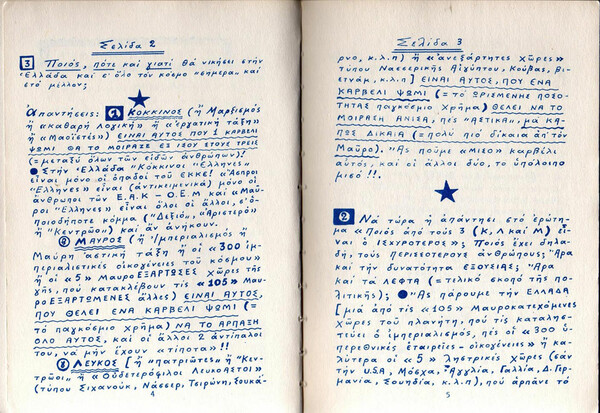 Σελίδα 2
3 Ποιός, πότε καί γιατί θά νικήσει στήν
Ἑλλάδα καί σ' ὅλο τόν κόσμο "σήμερα" καί
στό μέλλον;
Ἀπαντήσεις: 1 ΚΟΚΚΙΝΟΣ (ἤ Μαρξισμός
ἤ "καθαρή λογική" ἤ "ἐργατική τάξη"
ἤ "Μαοϊστές") ΕΙΝΑΙ ΑΥΤΟΣ ΠΟΥ 1 ΚΑΡΒΕΛΙ
ΨΩΜΙ ΘΑ ΤΟ ΜΟΙΡΑΖΕ ΕΞ ΙΣΟΥ ΣΤΟΥΣ ΤΡΕΙΣ
(=μεταξύ ὅλων τῶν εἰδῶν ἀνθρώπων)!
● Στήν Ἑλλάδα "Κόκκινοι "Ἕλληνες"
εἶναι μόνο οἱ ὀπαδοί τοῦ ΕΚΚΕ! "Ἄσπροι
"Ἕλληνες" εἶναι (ἀντικειμενικά) μόνο οἱ
ἄνθρωποι τῶν Ε.Α.Κ - Ο.Ε.Μ καί "Μαῦ-
ροι "Ἕλληνες" εἶναι ὅλοι οἱ ἄλλοι, σ' ὁ-
ποιοδήποτε κόμμα ("Δεξιό", "Ἀριστερό"
ἤ "Κεντρῶο") καί ἄν ἀνήκουν.
2 ΜΑΥΡΟΣ (ἤ Ἰμπεριαλισμός ἤ
Μαύρη ἀστική τάξη ἤ οἱ "300 ἰμ-
περιαλιστικές οἰκογένειες τοῦ κόσμου"
ἤ οἱ "5" ΜαυροΕΞΑΡΤΩΣΕΣ χῶρες τῆς
γῆς, πού κατακλέβουν τίς "105" Μαυ-
ροΕΞΑΡΤΩΜΕΝΕΣ ἄλλες) ΕΙΝΑΙ ΑΥΤΟΣ,
ΠΟΥ ΘΕΛΕΙ ΕΝΑ ΚΑΡΒΕΛΙ ΨΩΜΙ (=
τό παγκόσμιο χρῆμα) ΝΑ ΤΟ ΑΡΠΑΞΗ
ΟΛΟ ΑΥΤΟΣ, καί οἱ ἄλλοι 2 ἀντίπαλοί
του, νά μήν ἔχουν "τίποτα"!!
3 ΛΕΥΚΟΣ [ἤ "πατριῶτες" ἤ "Κεν-
τρῶοι" ἤ "Οὐδετερόφιλοι Λευκοαστοί"
(τύπου Σιχανούκ, Νάσσερ, Τσιρώνη, Σουκά-
4
Σελίδα 3
ρνο, κ.λ.π) ἤ "ἀνεξάρτητες χῶρες"
τύπου Νασσερικῆς Αἰγύπτου, Κούβας, Βι-
ετνάμ, κ.λ.π] ΕΙΝΑΙ ΑΥΤΟΣ, ΠΟΥ ΕΝΑ
ΚΑΡΒΕΛΙ ΨΩΜΙ (=ΤΟ ΩΡΙΣΜΕΝΗΣ ΠΟΣΟ-
ΤΗΤΑΣ παγκόσμιο Χρῆμα) ΘΕΛΕΙ ΝΑ ΤΟ
ΜΟΙΡΑΣΗ ΑΝΙΣΑ, πές "ΑΣΤΙΚΑ", ΜΑ ΚΑ-
ΠΩΣ ΔΙΚΑΙΑ (=πολύ πιό δίκαια ἀπ' τόν
Μαῦρο). "Ἄς ποῦμε "μισό" καρβέλι
αὐτός, καί οἱ ἄλλοι δύο, τό ὑπόλοιπο
μισό!!.
2 Νά τώρα ἡ ἀπάντηση στό ἐρώτη-
μα "Ποιός ἀπό τούς 3 (Κ, Λ καί Μ) εἶ-
ναι ὁ ΙΣΧΥΡΟΤΕΡΟΣ"; Ποιός ἔχει δηλα-
δή, τούς περισσότερους ἀνθρώπους; "Ἄρα
καί τήν δυνατότητα ΕΞΟΥΣΙΑΣ; "Ἄρα
καί τά ΛΕΦΤΑ (=τελικό σκοπό τῆς πο-
λιτικῆς); ● "Ἄς πάρουμε τήν ΕΛΛΑΔΑ
[μιά ἀπό τίς "105" Μαυροκατεχόμενες
χῶρες τοῦ πλανήτη, πού τίς καταλησ-
τεύει ὁ ἰμπεριαλισμός, πές οἱ "300 ὑ-
περεθνικές ἑταιρεῖες - οἰκογένειες" ἤ κα-
λύτερα οἱ "5" ληστρικές χῶρες (σάν
τήν U.S.A, Μόσχα, Ἀγγλία, Γαλλία, Δ. Γερ-
μανία, Σουηδία, κ.λ.π), πού ἁρπάνε τό
5